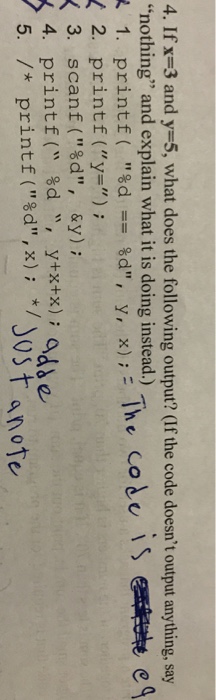 4. If x=3 and y=5, what does the following output? (If the code doesn't output anything, say
"nothing" and explain what it is doing instead.)
1. printf( "%d == %d", y, x); = The code is eq
2. printf("y=");
3. scanf("%d", &y);
4. printf(" %d ", y+x+x); adde
5. /* printf("%d",x); */ Just a note